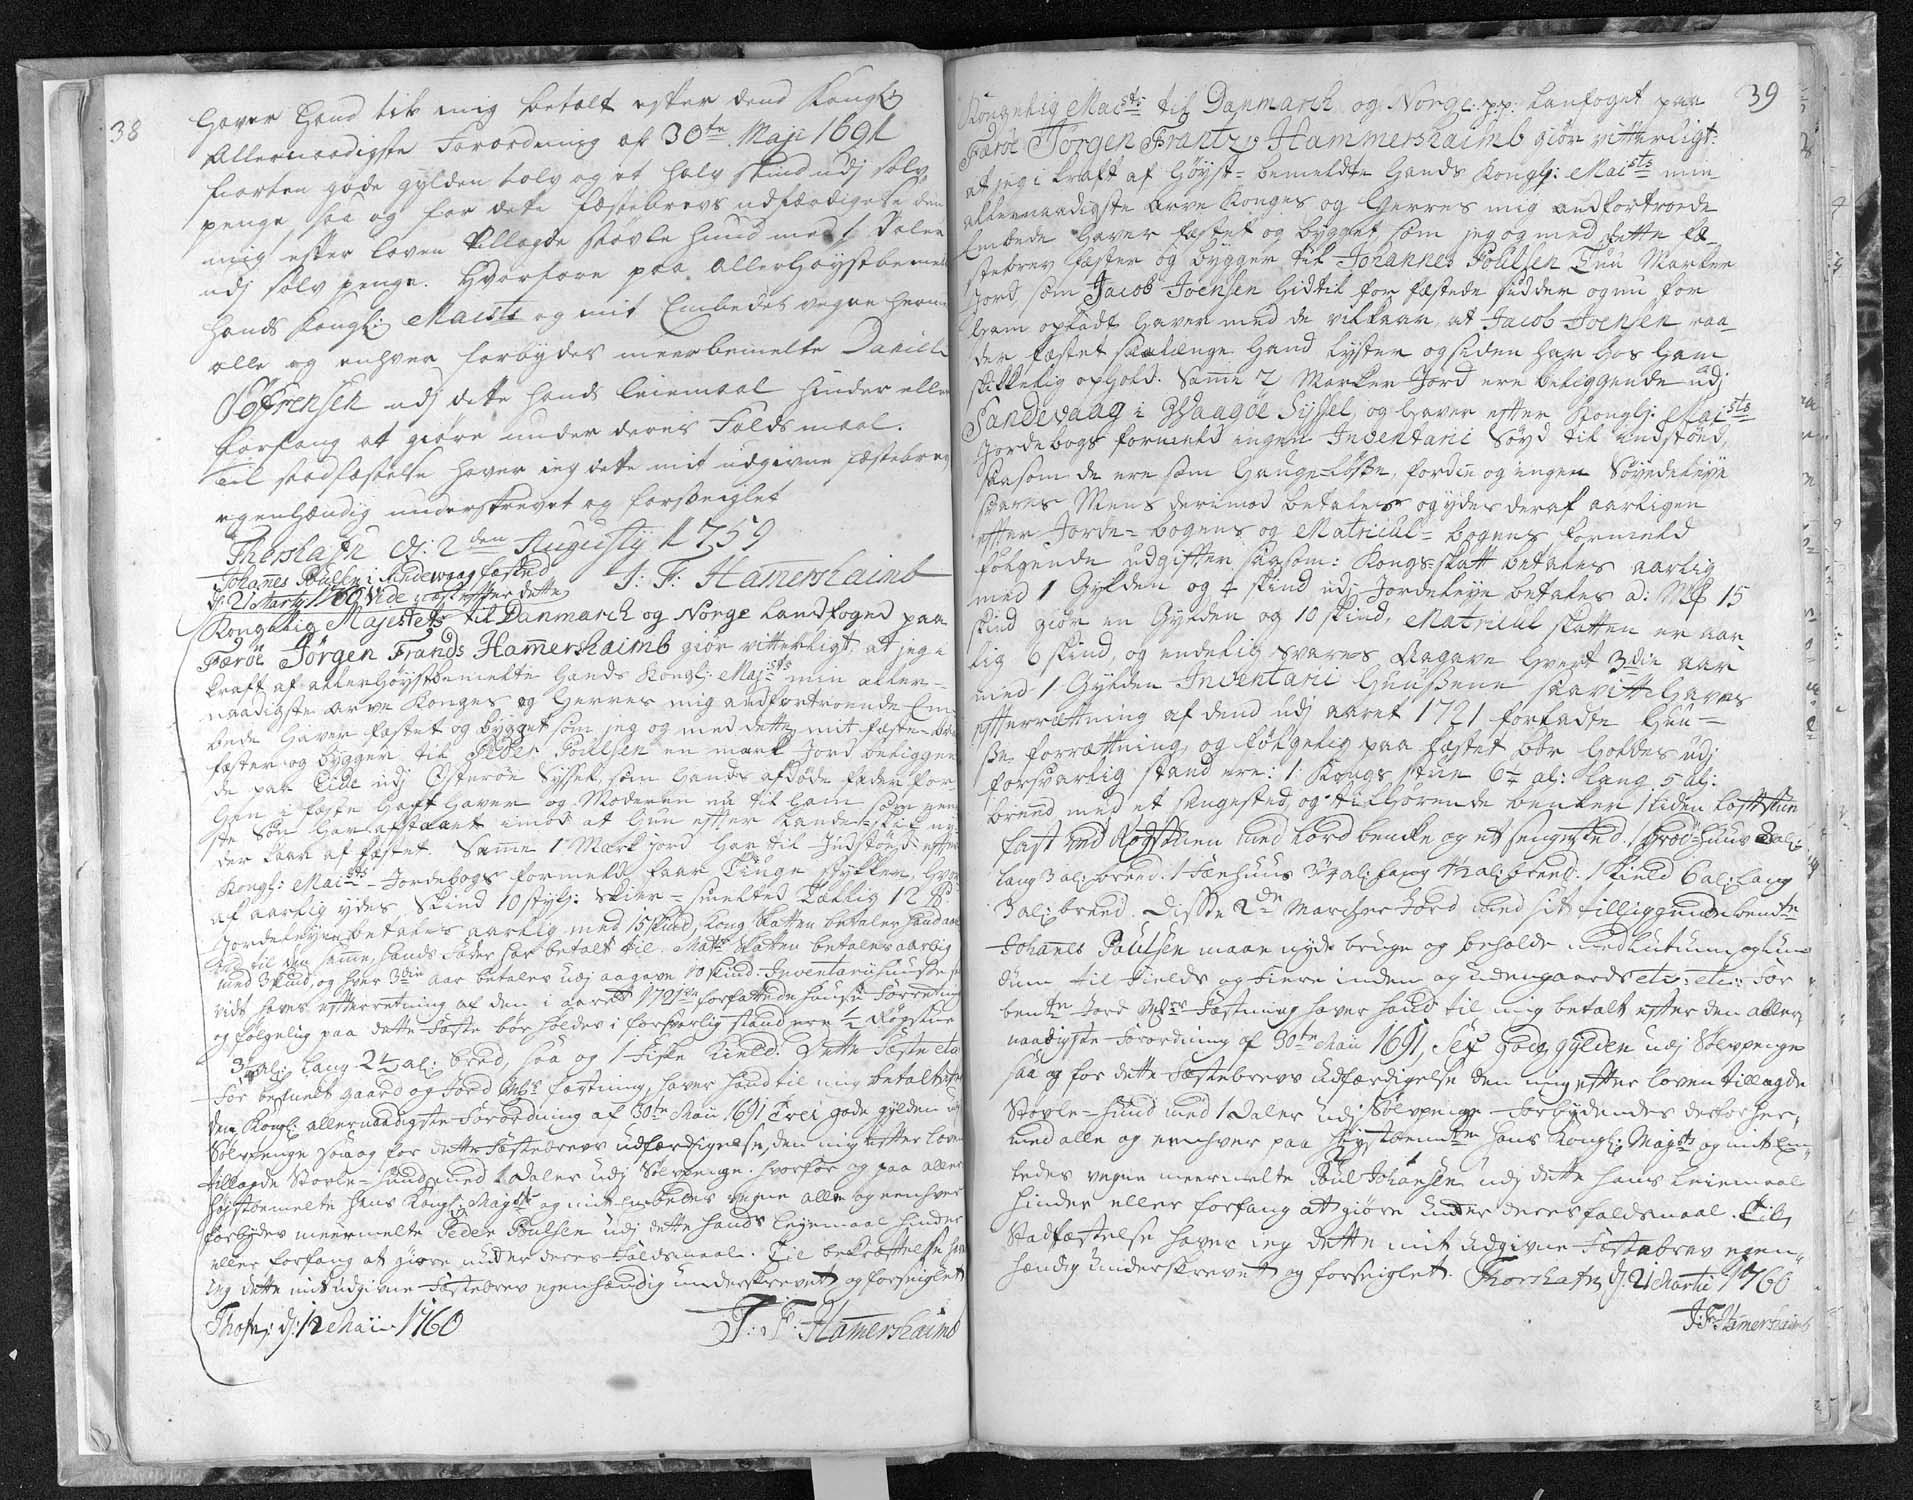 38
Haver Hand til mig betalt efter dend Kongl:
Allernaadigste Forordning af 30te Maji 1691
fiorten gode gylden tolv og et halv skind udj sølv
penge, saa og for dette fæstebrevs udfærdigelse den
mig efter loven tillagde støvle hund med 1 Daler
udj sølv penge. Hvorfore paa Allerhøystbemel
hands Kongl: Maists og mit Embedes vegne herm
alle og enhver forbydes meerbemelte Daniel
Søfrensen udj dette hands leiemaal hinder eller
forfang at giøre under deris Falds maal.
Til stadfæstelse haver ieg dette mit udgivne fæstebrev
egenhændig underskrevet og forseiglet
Thorshafn d: 2den Augusty 1759
J: F: Hamershaimb
Johanes Poulsen i Sandevaag fæsted
d: 21 Marty 1760 vide næst efter dette
Kongelig Majestets til Danmarck og Norge Landfoged paa
Færöe Jörgen Frands Hamershaimb giør vitterligt, at jeg i
kraft af allerhøystbemelte Hands Kongl: Majsts min aller-
naadigste Arve Konges og Herres mig andfortroende Em-
bede haver fæstet og bygget som jeg og med dette mit fæste-br
fæster og bygger til Peder Poulsen en mark Jord beliggen
de paa Eide udj Østerøe Syssel, som hands afdøde fader for
hen i fæste haft haver og Moderen nu til ham som yng
ste Søn har afstaaet imod at hun efter Landes-skik ny-
der kaar af fæstet. Samme 1 Mark jord har til Indstøed efter
Kongl: Maists Jordebogs formeld faar Tiuge stykker, hvor
af aarlig ydes Skind 10 stykr: skier-smelted Tallig 12 #
Jordeleyen betales aarlig med 15 skind, Kong skatten betaler hand aar
lig til den samme, hands fader har betalt til Matr: skatten betales aarlig
med 3 skind, og hver 3die aar betales udj aagave 10 skind. Inventarii huusse saa
vidt haves efterretning af den i aaret 1721 forfattede huuse forretning
og følgelig paa dette Fæste bør holdes i forsvarlig stand ere 1/2 Rögstue
3 1/4 al: lang 2 1/2 al: bred, saa og 1 Fiske hield. Dette Fæste etc
For bemelt gaard og Jord fæstning, haver hand til mig betalt efter
den Kongl: allernaadigste Forordning af 30te Maii 1691 Trei gode gylden udj
Sølvpenge saa og for dette Fæstebrevs udfærdigelse, den mig efter loven
tillagde Støvle-hund med 1 Daler udj Sølvpenge. hvorfor og paa aller
høystbemelte hans Kongl: Majsts og mit Embedes vegne alle og eenhver
forbydes meermelte Peder Poulsen udj dette hands leyemaal hinder
eller forfang at giøre under deres Faldsmaal. Til bekræftelse haver
ieg dette mit udgivne Fæstebrev egenhændig underskrevet og forseiglet
Thofn: d: 12 Maii 1760
J: F: Hamershaimb
39
Kongelig Maists til Danmarck og Norge: pp: Lanfoget paa
Færöe Jörgen Frantz Hammershaimb giør vitterligt.
at jeg i kraft af Høyst-bemeldte Hands Kongl: Maists min
allernaadigste Arve Konges og Herres mig andfortroede
Embede haver fæstet og bygget som jeg og med dette fæ-
stebrev fæster og bygger til Johannes Poulsen Tuu Marker
Jord som Jacob Joensen hidtil for fæstede sidder og nu for
ham opladt haver med de vilkaar, at Jacob Joensen raa
der fæstet saalænge hand lyster og siden har hos ham
skikkelig ophold. Samme 2 Marker Jord ere beliggende udj
Sandevaag i Waagöe Syssel, og haver efter Kongl: Maists
Jordebogs formeld ingen Inventarii Søyd til indstønd,
saasom de ere som Hauge-løsse, fordie og ingen Søydeleye
svares Mens derimod betales og ydes deraf aarligen
efter Jorde-bogens og Matricul-bogens formeld
følgende udgifter saasom: Kongs-skatt betales aarlig
med 1 Gylden og 4 skind udj Jordeleye betales a: M# 15
skind giør en Gylden og 10 skind, Matricul skatten er aar
lig 6 skind, og endelig svares Aagave hvert 3die aar
med 1 Gylden Inventarii huussene saavitt haves
efterrætning af dend udj aaret 1721 forfadte huu-
se forrættning, og følgelig paa fæstet bör holdes udj
forsvarlig stand ere: 1 Kongs stue 6 1/4 al: lang 5 al:
breed med et sengested og tilhørende benker 1 liden
fast ved Rögstuen med bord bencke og et sengested. 1 brød-Huus 3 al:
lang 3 al: breed. 1 Fæehuus 3 1/4 al: lang 4 1/2 al: breed. 1 hield 6 al: lang
3 al: breed. Disse 2de Marcher Jord med sit tilliggende bemte
Johanes Poulsen maae nyde bruge og beholde med lutum og lun-
dum til Fields og Fiere inden og udengaards etc: etc: For
bemte Jord fæstning haver hand til mig betalt efter den aller,
naadigste Forordning af 30te Maii 1691, Sex gode gylden udj Sølvpenge
saa og for dette Fæstebrevs udfærdigelse den mig efter loven tillagde
Støvle-hund med 1 Daler udj Sølvpenge Forbydendes derfor her,
med alle og eenhver paa Høystbemte hans Kongl: Majsts og mit Em-
bedes vegne meermelte Poul Johansen udj dette hans leiemaal
hinder eller forfang at giøre under deres faldsmaal. Til
Stadfæstelse haver ieg dette mit udgivne Fæstebrev egen-
hændig underskrevet og forseiglet. Thorshafn d: 21 Martii 1760
J: F: Hamershaimb